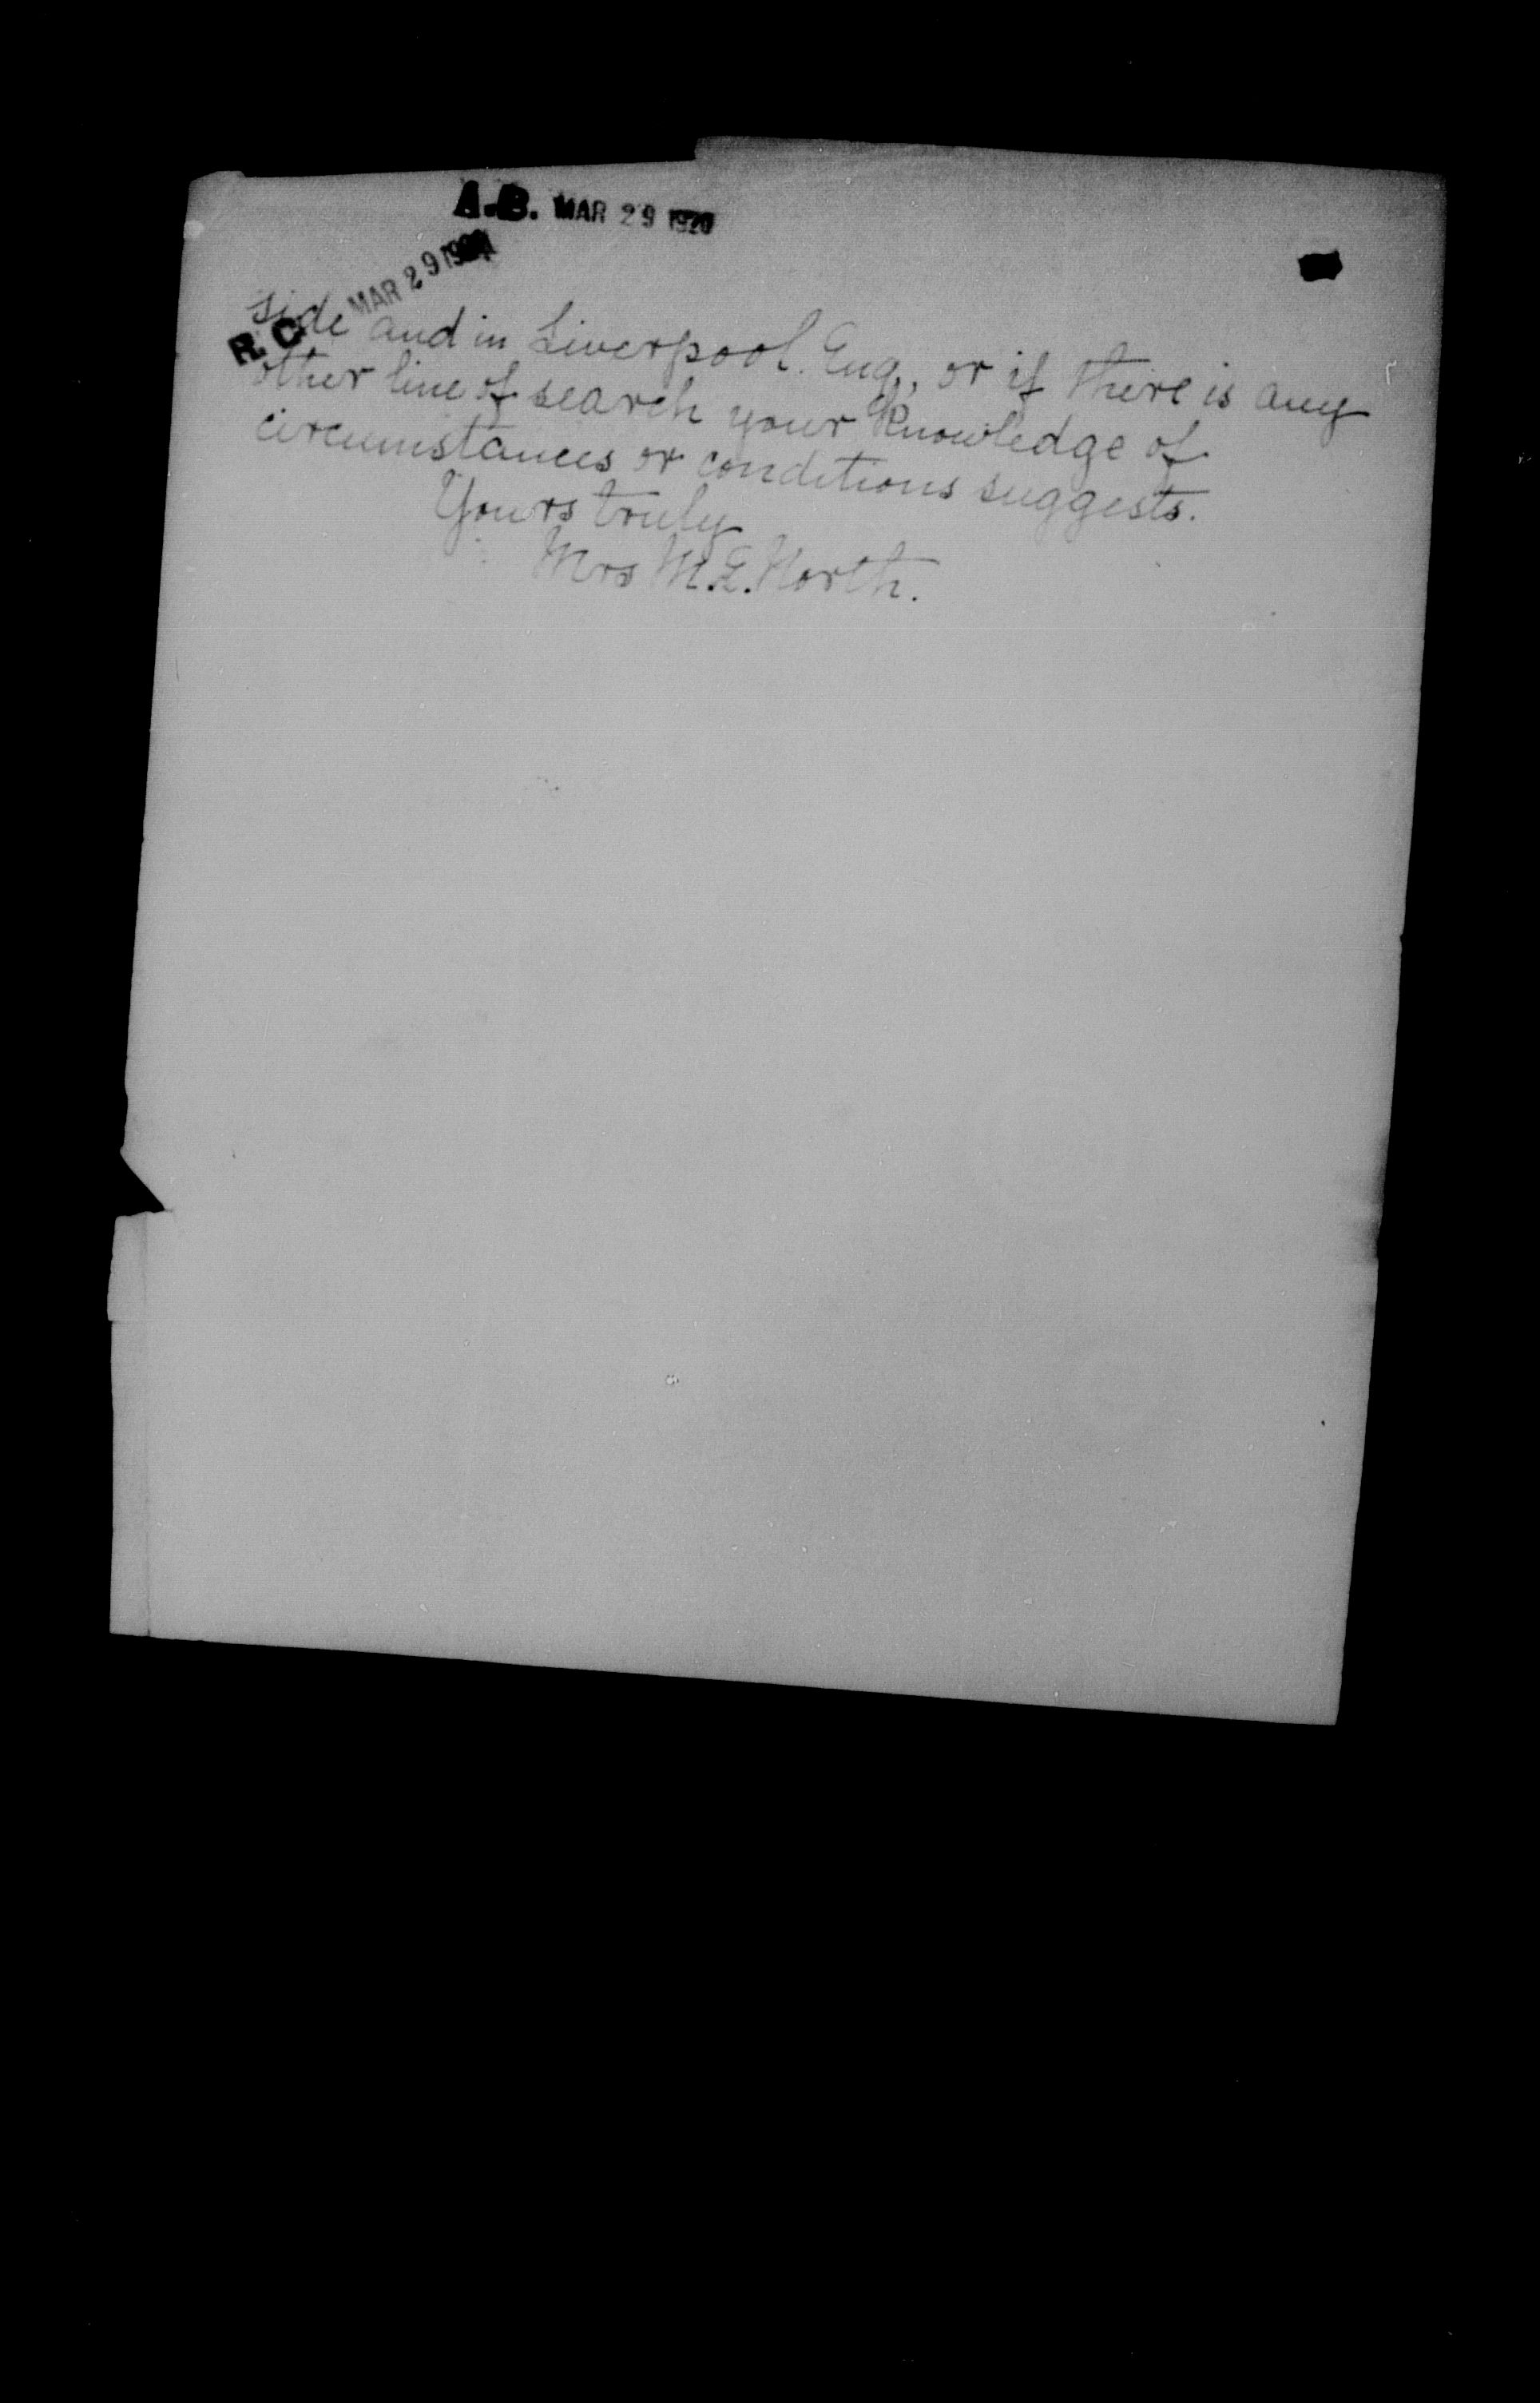 A.B. MAR 29 1920
R.C. MAR 29
side and in Liverpool. Eng., or if there is any
other line of search your knowledge of
circumstances or conditions suggests.
Yours truly
Mrs M.E. North.